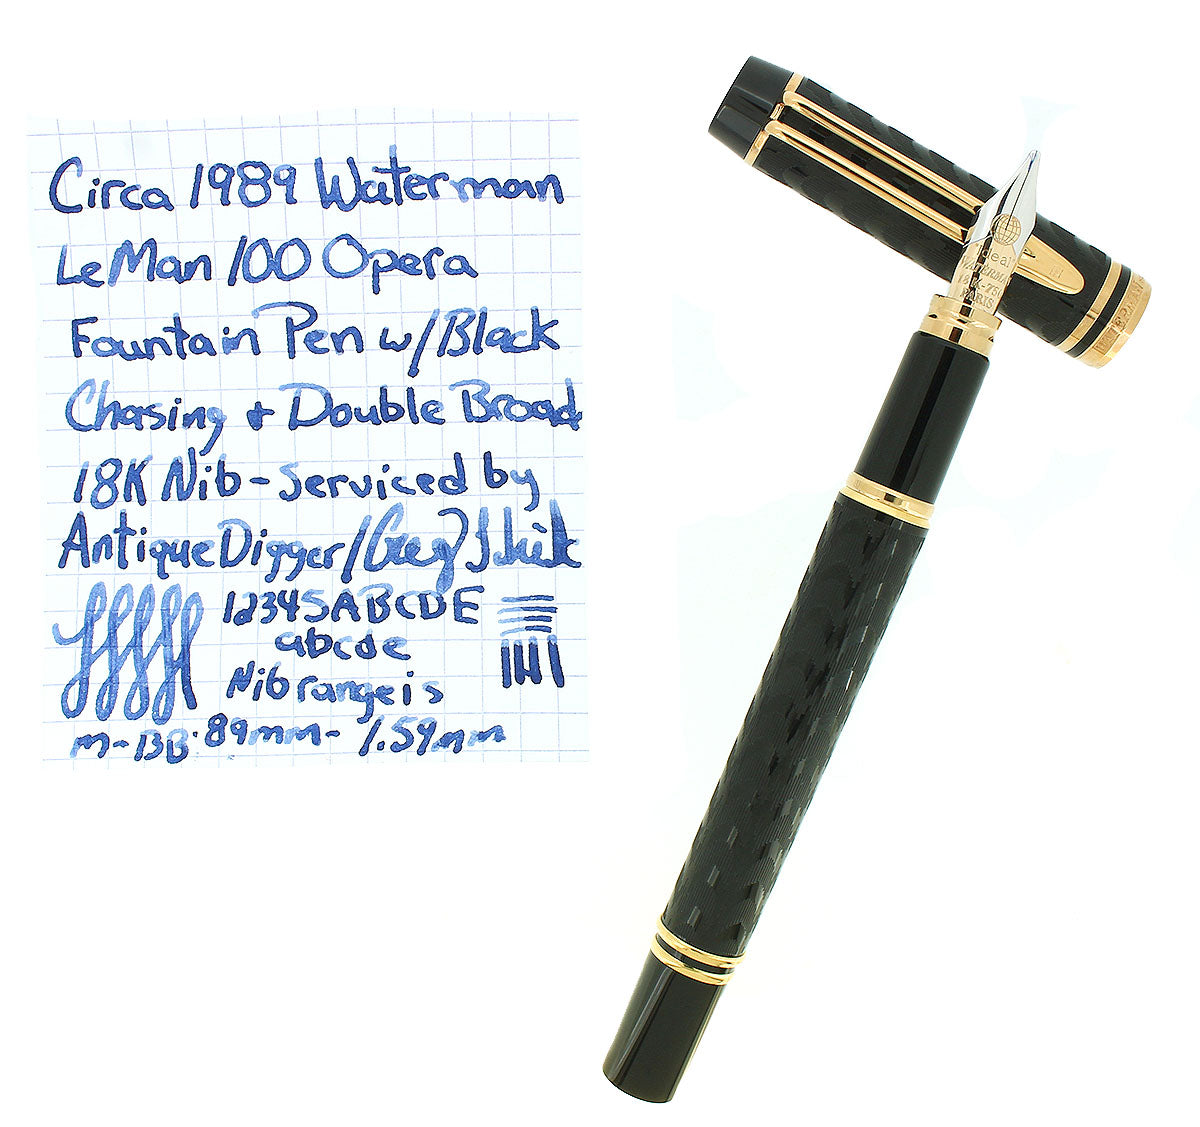 Circa 1989 Waterman
LeMan 100 Opera
Fountain Pen w/Black
Chasing + Double Broad
18K Nib - Serviced by
Antique Digger/Greg
12345ABCDE
abcde
Nib range is
M-BB .89mm - 1.59mm
ideal
WATERMAN
18K-750
PARIS
WATERMAN